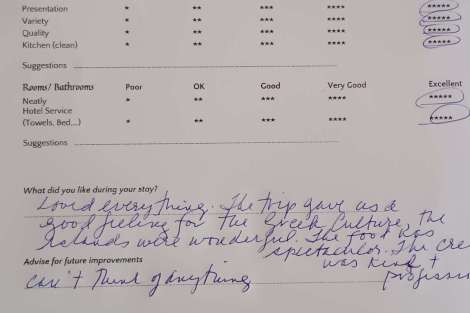 Presentation * ** *** **** *****
Variety * ** *** **** *****
Quality * ** *** **** *****
Kitchen (clean) * ** *** **** *****
Suggestions
Rooms/ Bathrooms Poor OK Good Very Good Excellent
Neatly * ** *** **** *****
Hotel Service
(Towels, Bed,...) * ** *** **** *****
Suggestions
What did you like during your stay?
Loved everything. The trip gave us a
good feeling for the Greek Culture, the
Islands were wonderful. The food was
spectachlor. The cre
Advise for future improvements
was kind +
can't think of anything professi